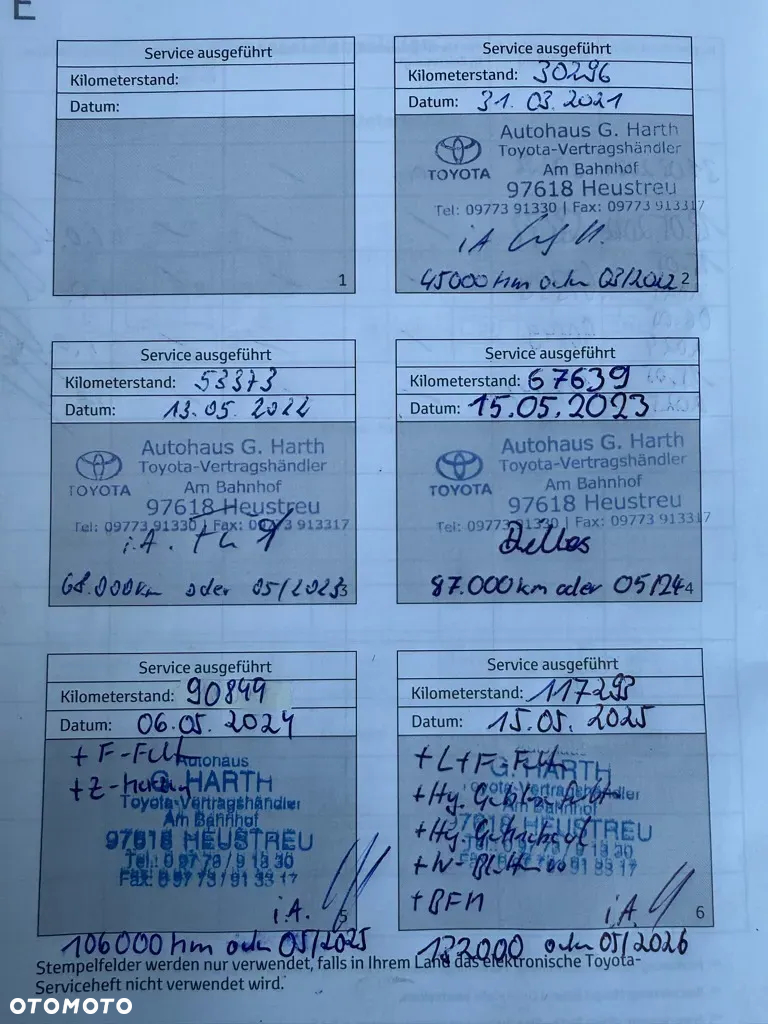 E
Service ausgeführt
Kilometerstand:
Datum:
1
Service ausgeführt
Kilometerstand: 30296
Datum: 31.03.2021
TOYOTA
Autohaus G. Harth
Toyota-Vertragshändler
Am Bahnhof
97618 Heustreu
Tel: 09773 91330 | Fax: 09773 913317
iA
45000 km oder 03/2022
2
Service ausgeführt
Kilometerstand: 53373
Datum: 13.05.2022
TOYOTA
Autohaus G. Harth
Toyota-Vertragshändler
Am Bahnhof
97618 Heustreu
Tel: 09773 91330 | Fax: 09773 913317
i.A.
68.000km oder 05/2023
3
Service ausgeführt
Kilometerstand: 67639
Datum: 15.05.2023
TOYOTA
Autohaus G. Harth
Toyota-Vertragshändler
Am Bahnhof
97618 Heustreu
Tel: 09773 91330 | Fax: 09773 913317
87.000km oder 05/24
4
Service ausgeführt
Kilometerstand: 90849
Datum: 06.05.2024
+ F-
+ Z-
Autohaus
G. HARTH
Toyota-Vertragshändler
Am Bahnhof
97618 HEUSTREU
Tel.: 0 97 73 / 9 13 30
Fax: 0 97 73 / 91 33 17
i.A.
5
106000 km oder 05/2025
Service ausgeführt
Kilometerstand: 117293
Datum: 15.05.2025
+ L + F-
G. HARTH
+ Hy.
Toyota-Vertragshändler
Am Bahnhof
+ Hy.
97618 HEUSTREU
+ W-
+ BFM
i.A.
6
132000 oder 05/2026
Stempelfelder werden nur verwendet, falls in Ihrem Land das elektronische Toyota-
Serviceheft nicht verwendet wird.
OTOMOTO